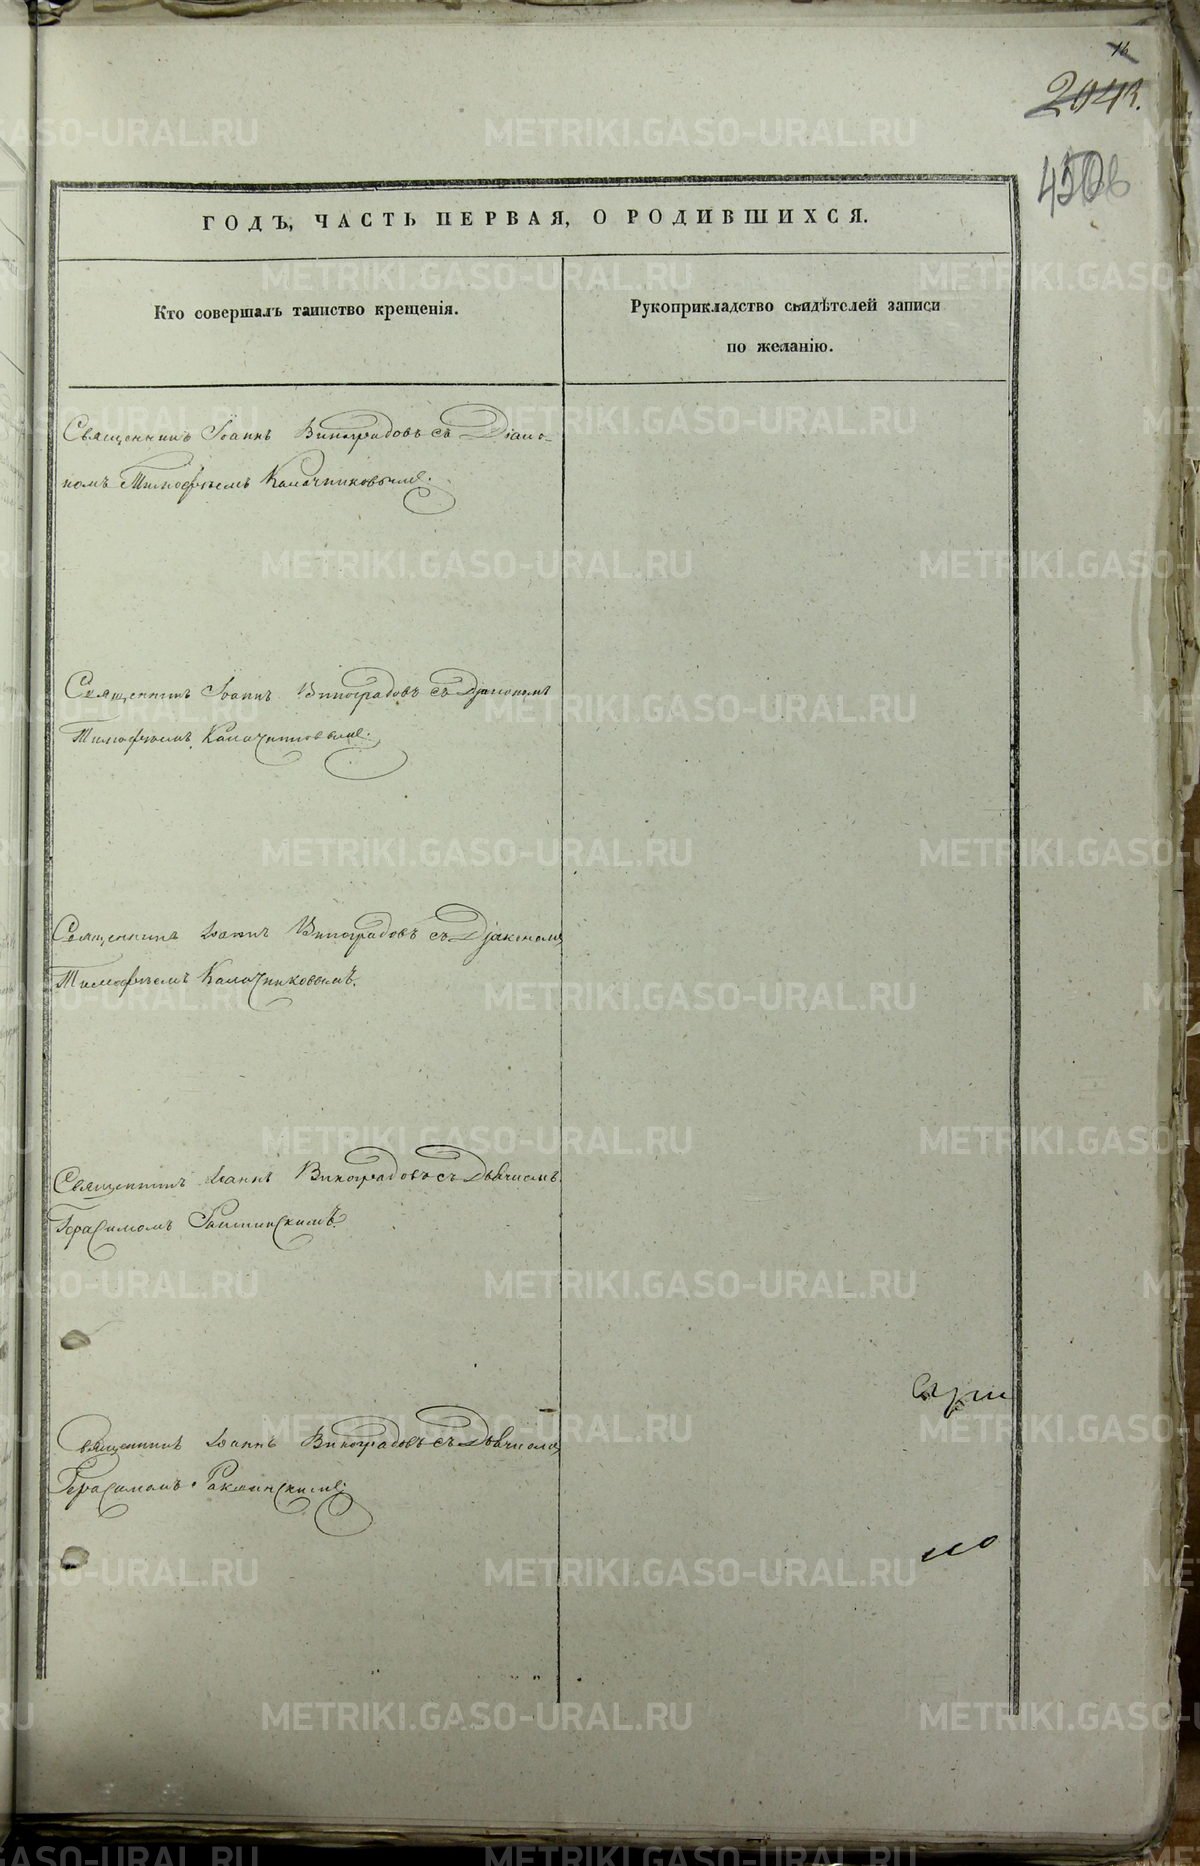 16
204 з.
450 об
ГОДЪ, ЧАСТЬ ПЕРВАЯ, О РОДИВШИХСЯ.
Кто совершалъ таинство крещенія.
Рукоприкладство свидѣтелей записи
по желанію.
Священникъ Іоаннъ Виноградовъ съ Діако-
номъ Тимофѣемъ Калачниковымъ.
Священникъ Іоаннъ Виноградовъ съ Діакономъ
Тимофѣемъ Калачниковымъ.
Священникъ Іоаннъ Виноградовъ съ Діакономъ
Тимофѣемъ Калачниковымъ.
Священникъ Іоаннъ Виноградовъ съ Дьячкомъ
Герасимомъ
Священникъ Іоаннъ Виноградовъ съ Дьячкомъ
Герасимомъ
METRIKI.GASO-URAL.RU